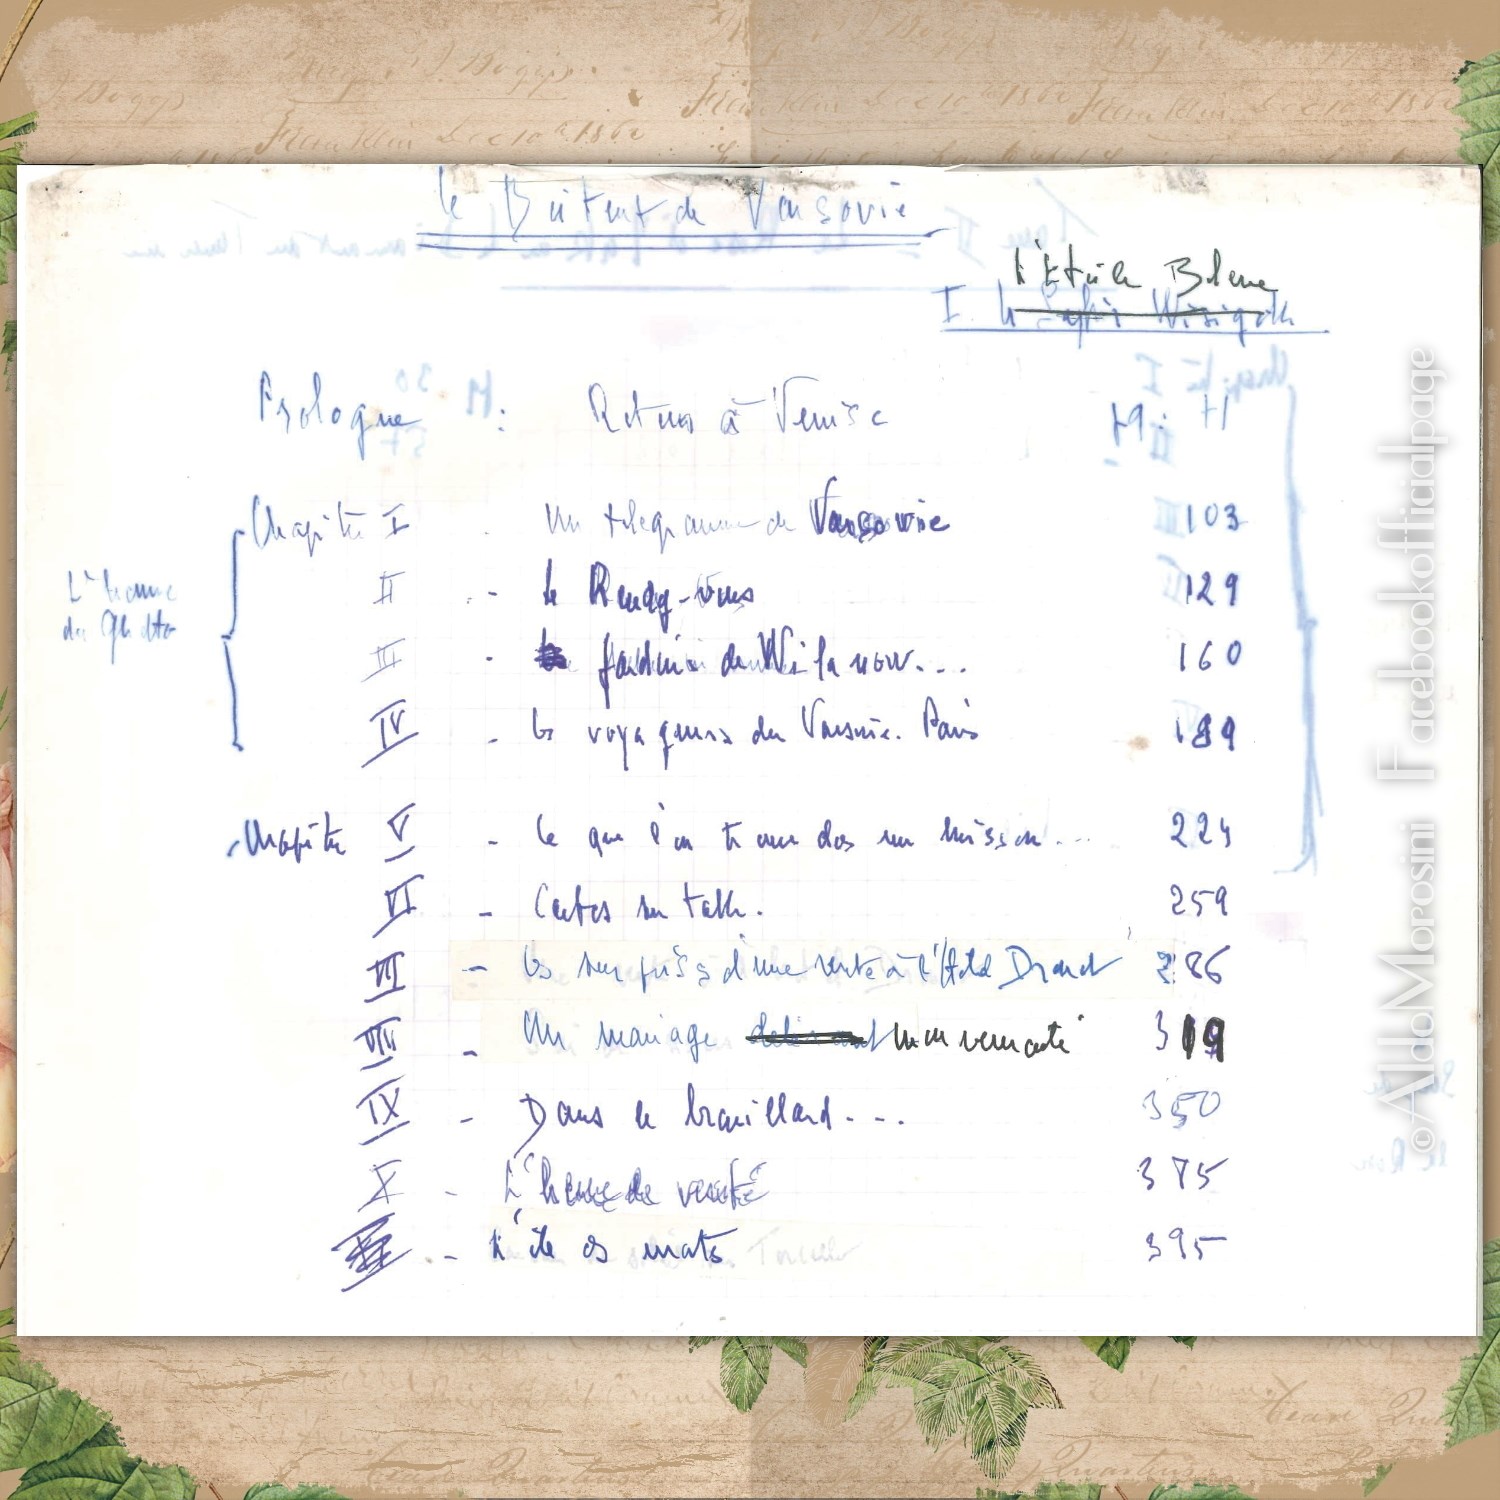 Le Boiteux de Varsovie
L'Etoile Bleue
I. Le Saphir Wisigoth
Prologue : Retour à Venise
Chapitre I . Un télégramme de Varsovie 103
L'homme du Ghetto
II . - Le Rendez-vous 129
III . Jardins de Wilanow... 160
IV - Les voyageurs du Varsovie. Paris 189
Chapitre V - Ce que l'on trouve dans un buisson... 224
VI - Cartes sur table. 259
VII - Les surprises d'une vente à l'Hôtel Drouot 286
VIII - Un mariage mouvementé 319
IX - Dans le brouillard... 350
X - L'heure de vérité 375
- L'île des morts 395
©AldoMorosini Facebookofficialpage